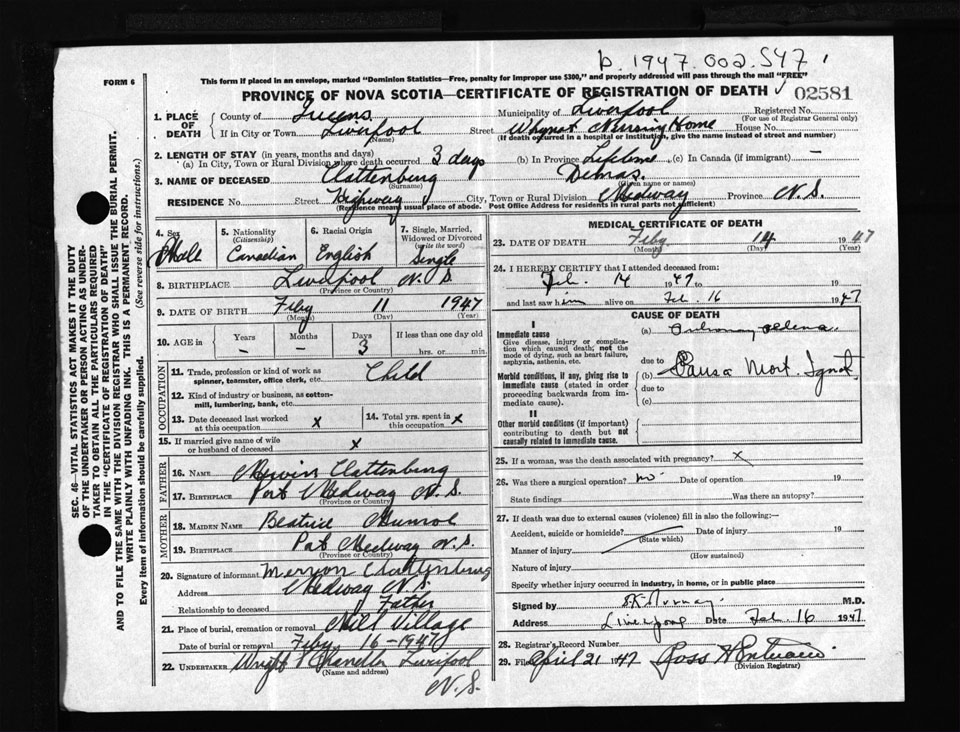 b. 1947. 002.547
FORM 6
This form if placed in an envelope, marked "Dominion Statistics—Free, penalty for improper use $300," and properly addressed will pass through the mail "FREE"
PROVINCE OF NOVA SCOTIA—CERTIFICATE OF REGISTRATION OF DEATH 02581
1. PLACE OF DEATH County of Queens Municipality of Liverpool Registered No.
(For use of Registrar General only)
If in City or Town Liverpool Street Whynot Nursing Home House No.
(Name) (If death occurred in a hospital or institution, give the name instead of street and number)
2. LENGTH OF STAY (in years, months and days)
(a) In City, Town or Rural Division where death occurred 3 days (b) In Province Lifetime (c) In Canada (if immigrant) —
3. NAME OF DECEASED Clattenburg
(Surname) (Given name or names)
RESIDENCE No. Street Highway City, Town or Rural Division Medway Province N.S.
(Residence means usual place of abode. Post Office Address for residents in rural parts not sufficient)
4. Sex Male
5. Nationality (Citizenship) Canadian
6. Racial Origin English
7. Single, Married, Widowed or Divorced (write the word) Single
8. BIRTHPLACE Liverpool N.S.
(Province or Country)
9. DATE OF BIRTH Feby 11 1947
(Month) (Day) (Year)
10. AGE in Years Months Days If less than one day old
— — 3 hrs. or min.
OCCUPATION
11. Trade, profession or kind of work as spinner, teamster, office clerk, etc. Child
12. Kind of industry or business, as cotton-mill, lumbering, bank, etc.
13. Date deceased last worked at this occupation x 14. Total yrs. spent in this occupation x
15. If married give name of wife or husband of deceased x
FATHER
16. NAME Mervin Clattenburg
17. BIRTHPLACE Port Medway N.S.
(Province or Country)
MOTHER
18. MAIDEN NAME Beatrice
19. BIRTHPLACE Port Medway N.S.
(Province or Country)
20. Signature of informant Clattenburg
Address Medway N.S.
Relationship to deceased Father
21. Place of burial, cremation or removal Mill Village
Date of burial or removal Feby 16-1947
22. UNDERTAKER Wright Chandler Liverpool
(Name and address)
N.S.
MEDICAL CERTIFICATE OF DEATH
23. DATE OF DEATH Feby 14 1947
(Month) (Day) (Year)
24. I HEREBY CERTIFY that I attended deceased from:
Feb. 14 1947 to 19
and last saw him alive on Feb. 16 1947
CAUSE OF DEATH
I
Immediate cause
Give disease, injury or complication which caused death; not the mode of dying, such as heart failure, asphyxia, asthenia, etc.
(a)
due to
Morbid conditions, if any, giving rise to immediate cause (stated in order proceeding backwards from immediate cause).
(b) Causa Mort. Ignot
due to
(c)
II
Other morbid conditions (if important) contributing to death but not causally related to immediate cause.
25. If a woman, was the death associated with pregnancy? x
26. Was there a surgical operation? no Date of operation 19
State findings Was there an autopsy?
27. If death was due to external causes (violence) fill in also the following:—
Accident, suicide or homicide? Date of injury 19
(State which)
Manner of injury
(How sustained)
Nature of injury
Specify whether injury occurred in industry, in home, or in public place
Signed by M.D.
Address Liverpool Date Feb. 16 1947
28. Registrar's Record Number
29. Filed April 21 1947 Ross
(Division Registrar)
SEC. 46—VITAL STATISTICS ACT MAKES IT THE DUTY
OF THE UNDERTAKER OR PERSON ACTING AS UNDER-
TAKER TO OBTAIN ALL THE PARTICULARS REQUIRED
IN THE "CERTIFICATE OF REGISTRATION OF DEATH" AND TO FILE
THE SAME WITH THE DIVISION REGISTRAR WHO SHALL ISSUE THE BURIAL PERMIT.
WRITE PLAINLY WITH UNFADING INK. THIS IS A PERMANENT RECORD.
Every item of information should be carefully supplied. (See reverse side for instructions.)